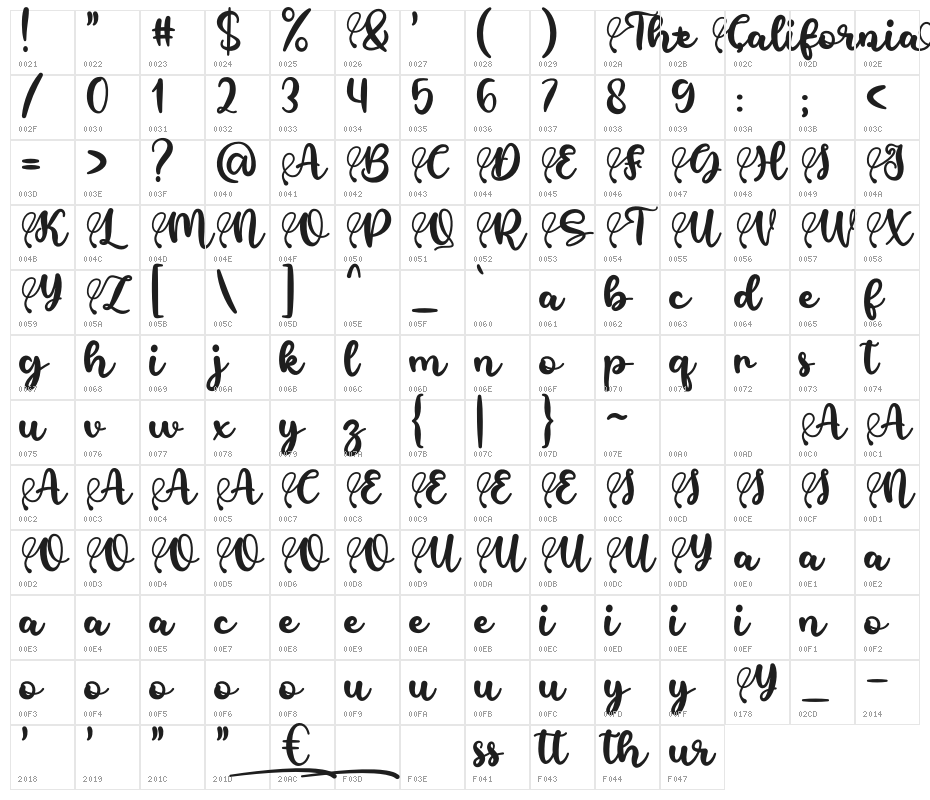 ! " # $ % & ' ( ) The California
0021 0022 0023 0024 0025 0026 0027 0028 0029 002A 002B 002C 002D 002E
/ 0 1 2 3 4 5 6 7 8 9 : ; <
002F 0030 0031 0032 0033 0034 0035 0036 0037 0038 0039 003A 003B 003C
= > ? @ A B C D E F G H I J
003D 003E 003F 0040 0041 0042 0043 0044 0045 0046 0047 0048 0049 004A
K L M N O P Q R S T U V W X
004B 004C 004D 004E 004F 0050 0051 0052 0053 0054 0055 0056 0057 0058
Y Z [ \ ] ^ _ ` a b c d e f
0059 005A 005B 005C 005D 005E 005F 0060 0061 0062 0063 0064 0065 0066
g h i j k l m n o p q r s t
0067 0068 0069 006A 006B 006C 006D 006E 006F 0070 0071 0072 0073 0074
u v w x y z { | } ~ A A
0075 0076 0077 0078 0079 007A 007B 007C 007D 007E 00A0 00AD 00C0 00C1
A A A A C E E E E I I I I N
00C2 00C3 00C4 00C5 00C7 00C8 00C9 00CA 00CB 00CC 00CD 00CE 00CF 00D1
O O O O O O U U U U Y a a a
00D2 00D3 00D4 00D5 00D6 00D8 00D9 00DA 00DB 00DC 00DD 00E0 00E1 00E2
a a a c e e e e i i i i n o
00E3 00E4 00E5 00E7 00E8 00E9 00EA 00EB 00EC 00ED 00EE 00EF 00F1 00F2
o o o o o u u u u y y Y _ —
00F3 00F4 00F5 00F6 00F8 00F9 00FA 00FB 00FC 00FD 00FF 0178 02CD 2014
' ' " " € ss tt th ur
2018 2019 201C 201D 20AC F03D F03E F041 F043 F044 F047